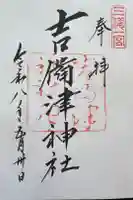 奉拝
三備一宮
吉備津神社
令和八年五月卅日